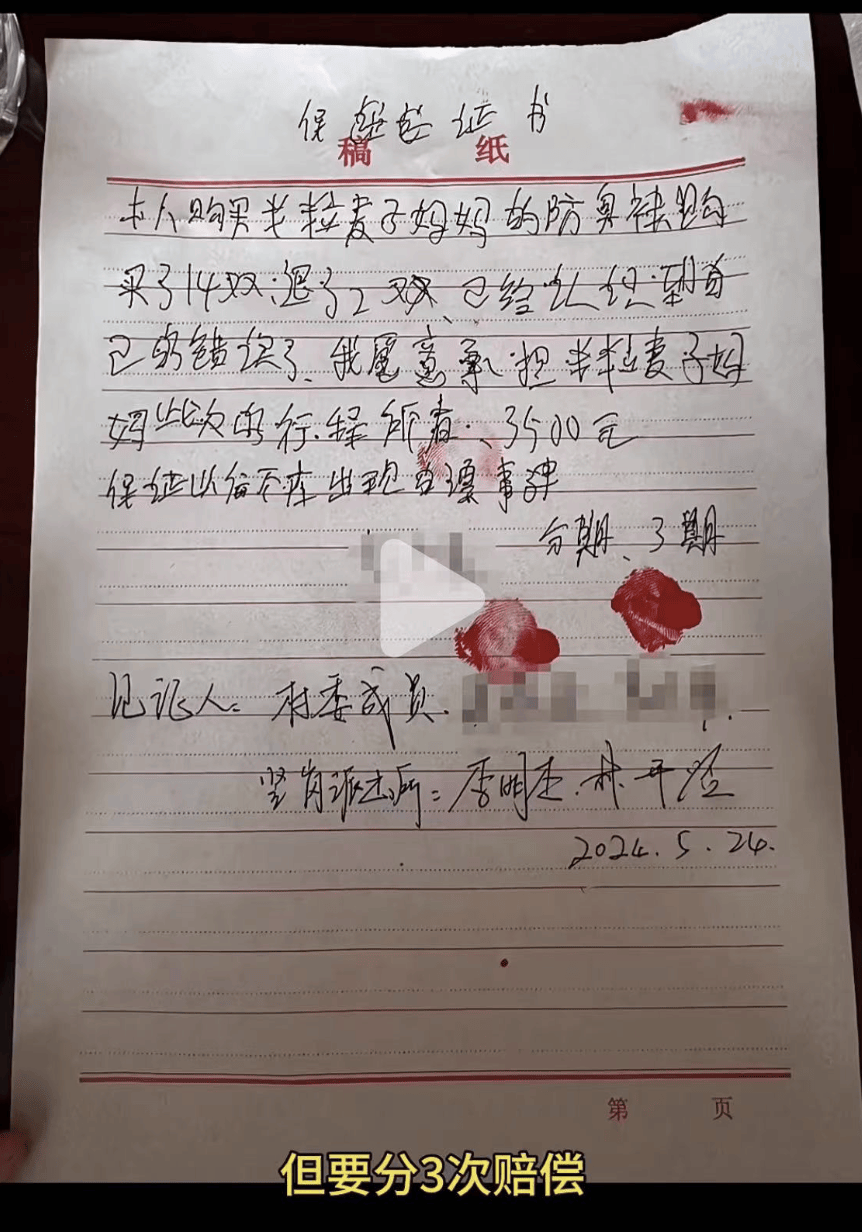 保证书
稿 纸
本人购买半粒麦子妈妈的防臭袜购
买了14双退了2双、已经认识到自
己的错误了、我愿意承担半粒麦子妈
妈此次的行程所有、3500元
保证以后不在出现此类事件
分期、3期
见证人: 村委成员.
坚岗派出所: 李明杰. 林
2024.5.24.
第 页
但要分3次赔偿